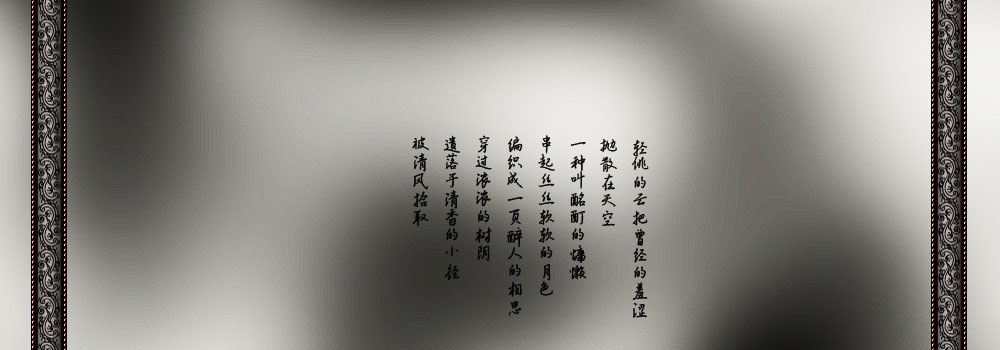 轻佻的云把曾经的羞涩
抛散在天空
一种叫酩酊的慵懒
串起丝丝软软的月色
编织成一页醉人的相思
穿过浓浓的树阴
遗落于清香的小径
被清风拾取